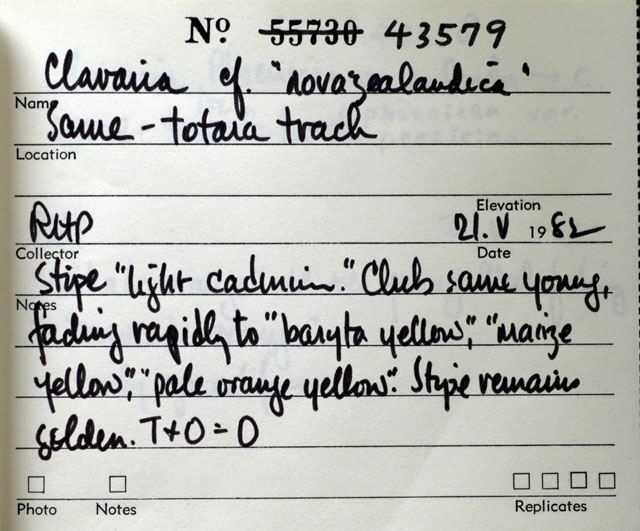 Nº 55730 43579
Clavaria cf. "novazealandica"
Name
Same - totara track
Location
Elevation
RHP 21.V 1982
Collector Date
Stipe "light cadmium." Club same young,
Notes
fading rapidly to "baryta yellow", "maize
yellow", "pale orange yellow". Stipe remains
golden. T+O = O
Photo Notes Replicates